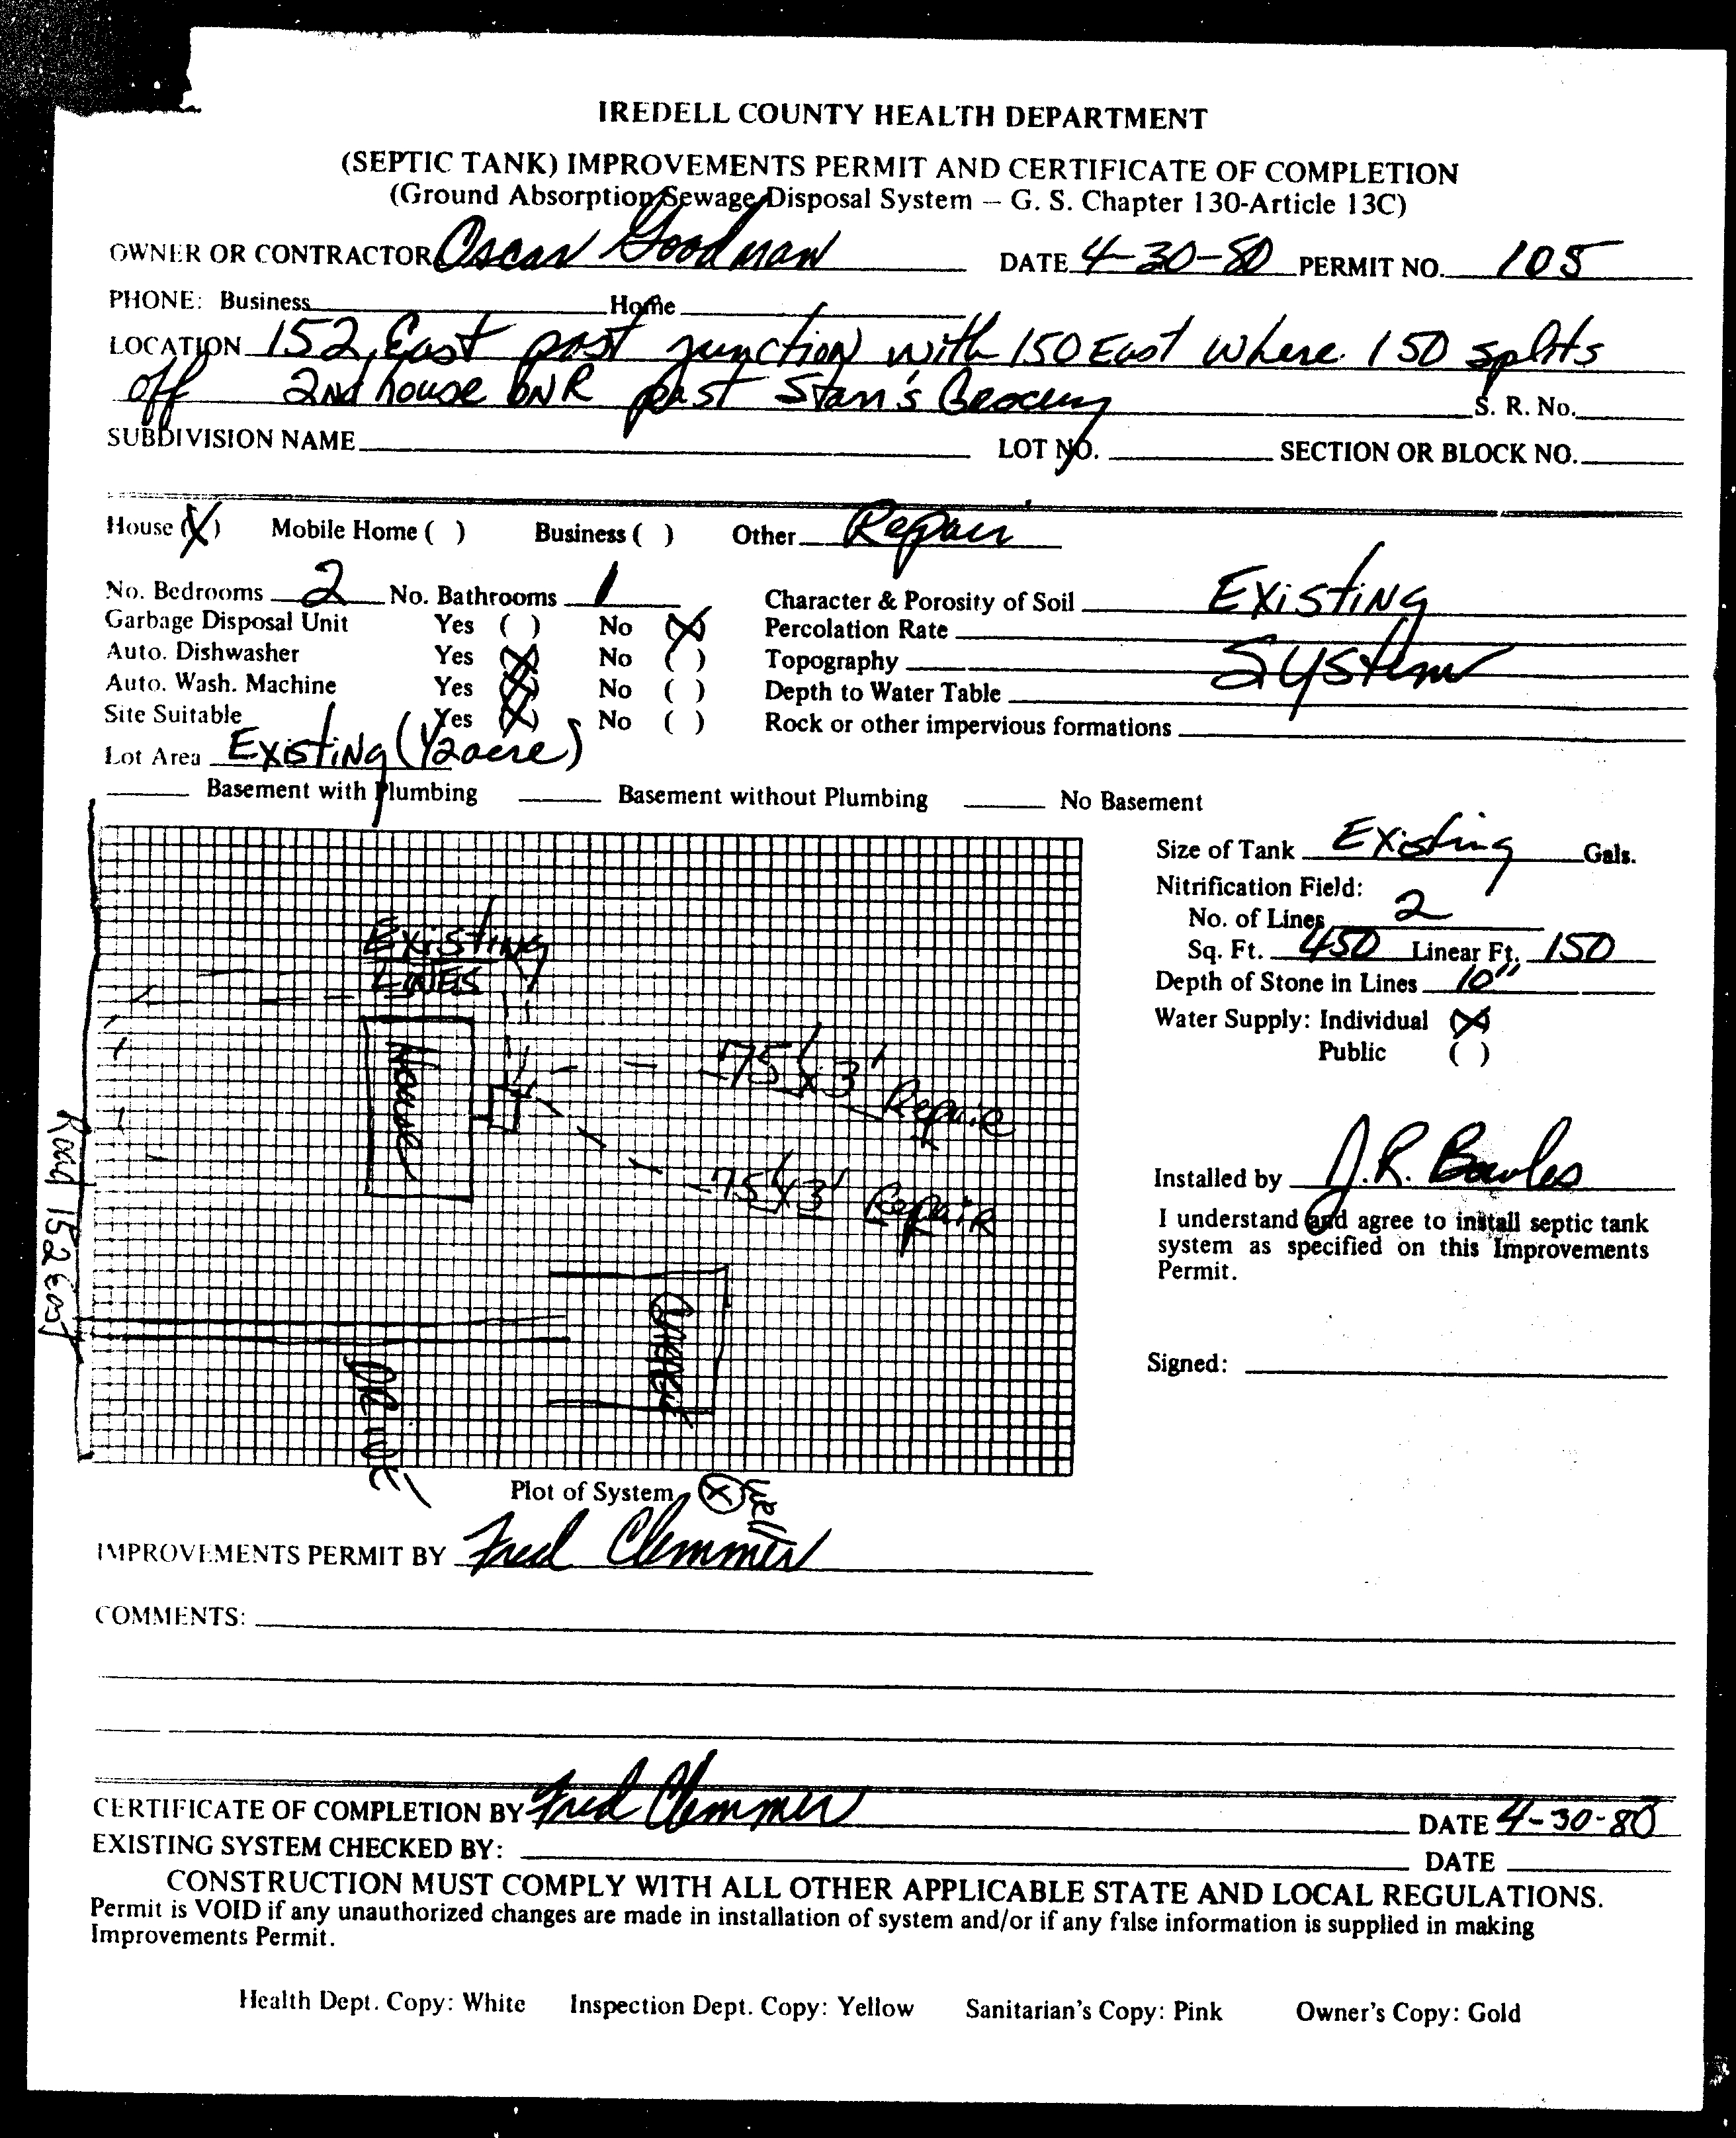 IREDELL COUNTY HEALTH DEPARTMENT
(SEPTIC TANK) IMPROVEMENTS PERMIT AND CERTIFICATE OF COMPLETION
(Ground Absorption Sewage Disposal System – G. S. Chapter 130-Article 13C)
OWNER OR CONTRACTOR Oscar Goodman DATE 4-30-80 PERMIT NO. 105
PHONE: Business Home
LOCATION 152 East past junction with 150 East where 150 splits
off 2nd house ONR past Stan's Grocery S. R. No.
SUBDIVISION NAME LOT NO. SECTION OR BLOCK NO.
House (X) Mobile Home ( ) Business ( ) Other Repair
No. Bedrooms 2 No. Bathrooms 1 Character & Porosity of Soil Existing
Garbage Disposal Unit Yes ( ) No (X) Percolation Rate
Auto. Dishwasher Yes (X) No ( ) Topography System
Auto. Wash. Machine Yes (X) No ( ) Depth to Water Table
Site Suitable Yes (X) No ( ) Rock or other impervious formations
Lot Area Existing (1/2 acre)
Basement with Plumbing Basement without Plumbing No Basement
Size of Tank Existing Gals.
Nitrification Field:
No. of Lines 2
Sq. Ft. 450 Linear Ft. 150
Depth of Stone in Lines 10"
Water Supply: Individual (X)
Public ( )
Installed by J.R. Bowles
I understand and agree to install septic tank
system as specified on this Improvements
Permit.
Signed:
Existing
LINES
House
75' x 3' Repair
75' x 3' Repair
Road 152 East
DRIVE
Plot of System (X) Well
IMPROVEMENTS PERMIT BY Fred Clemmer
COMMENTS:
CERTIFICATE OF COMPLETION BY Fred Clemmer DATE 4-30-80
EXISTING SYSTEM CHECKED BY: DATE
CONSTRUCTION MUST COMPLY WITH ALL OTHER APPLICABLE STATE AND LOCAL REGULATIONS.
Permit is VOID if any unauthorized changes are made in installation of system and/or if any false information is supplied in making
Improvements Permit.
Health Dept. Copy: White Inspection Dept. Copy: Yellow Sanitarian's Copy: Pink Owner's Copy: Gold